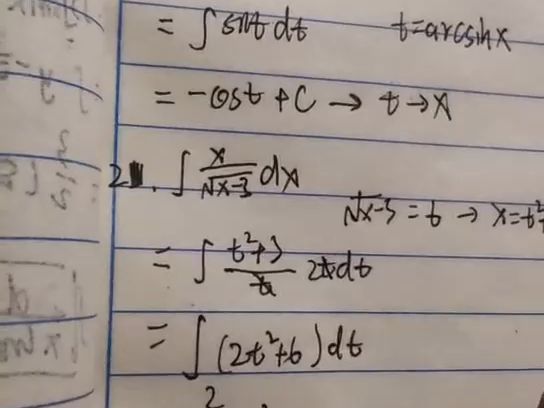 = ∫ sint dt    t = arcsinx
= -cost + C → t → x
2. ∫ x/√(x-3) dx
√(x-3) = t → x = t²
= ∫ (t²+3)/t 2t dt
= ∫ (2t²+6) dt
2